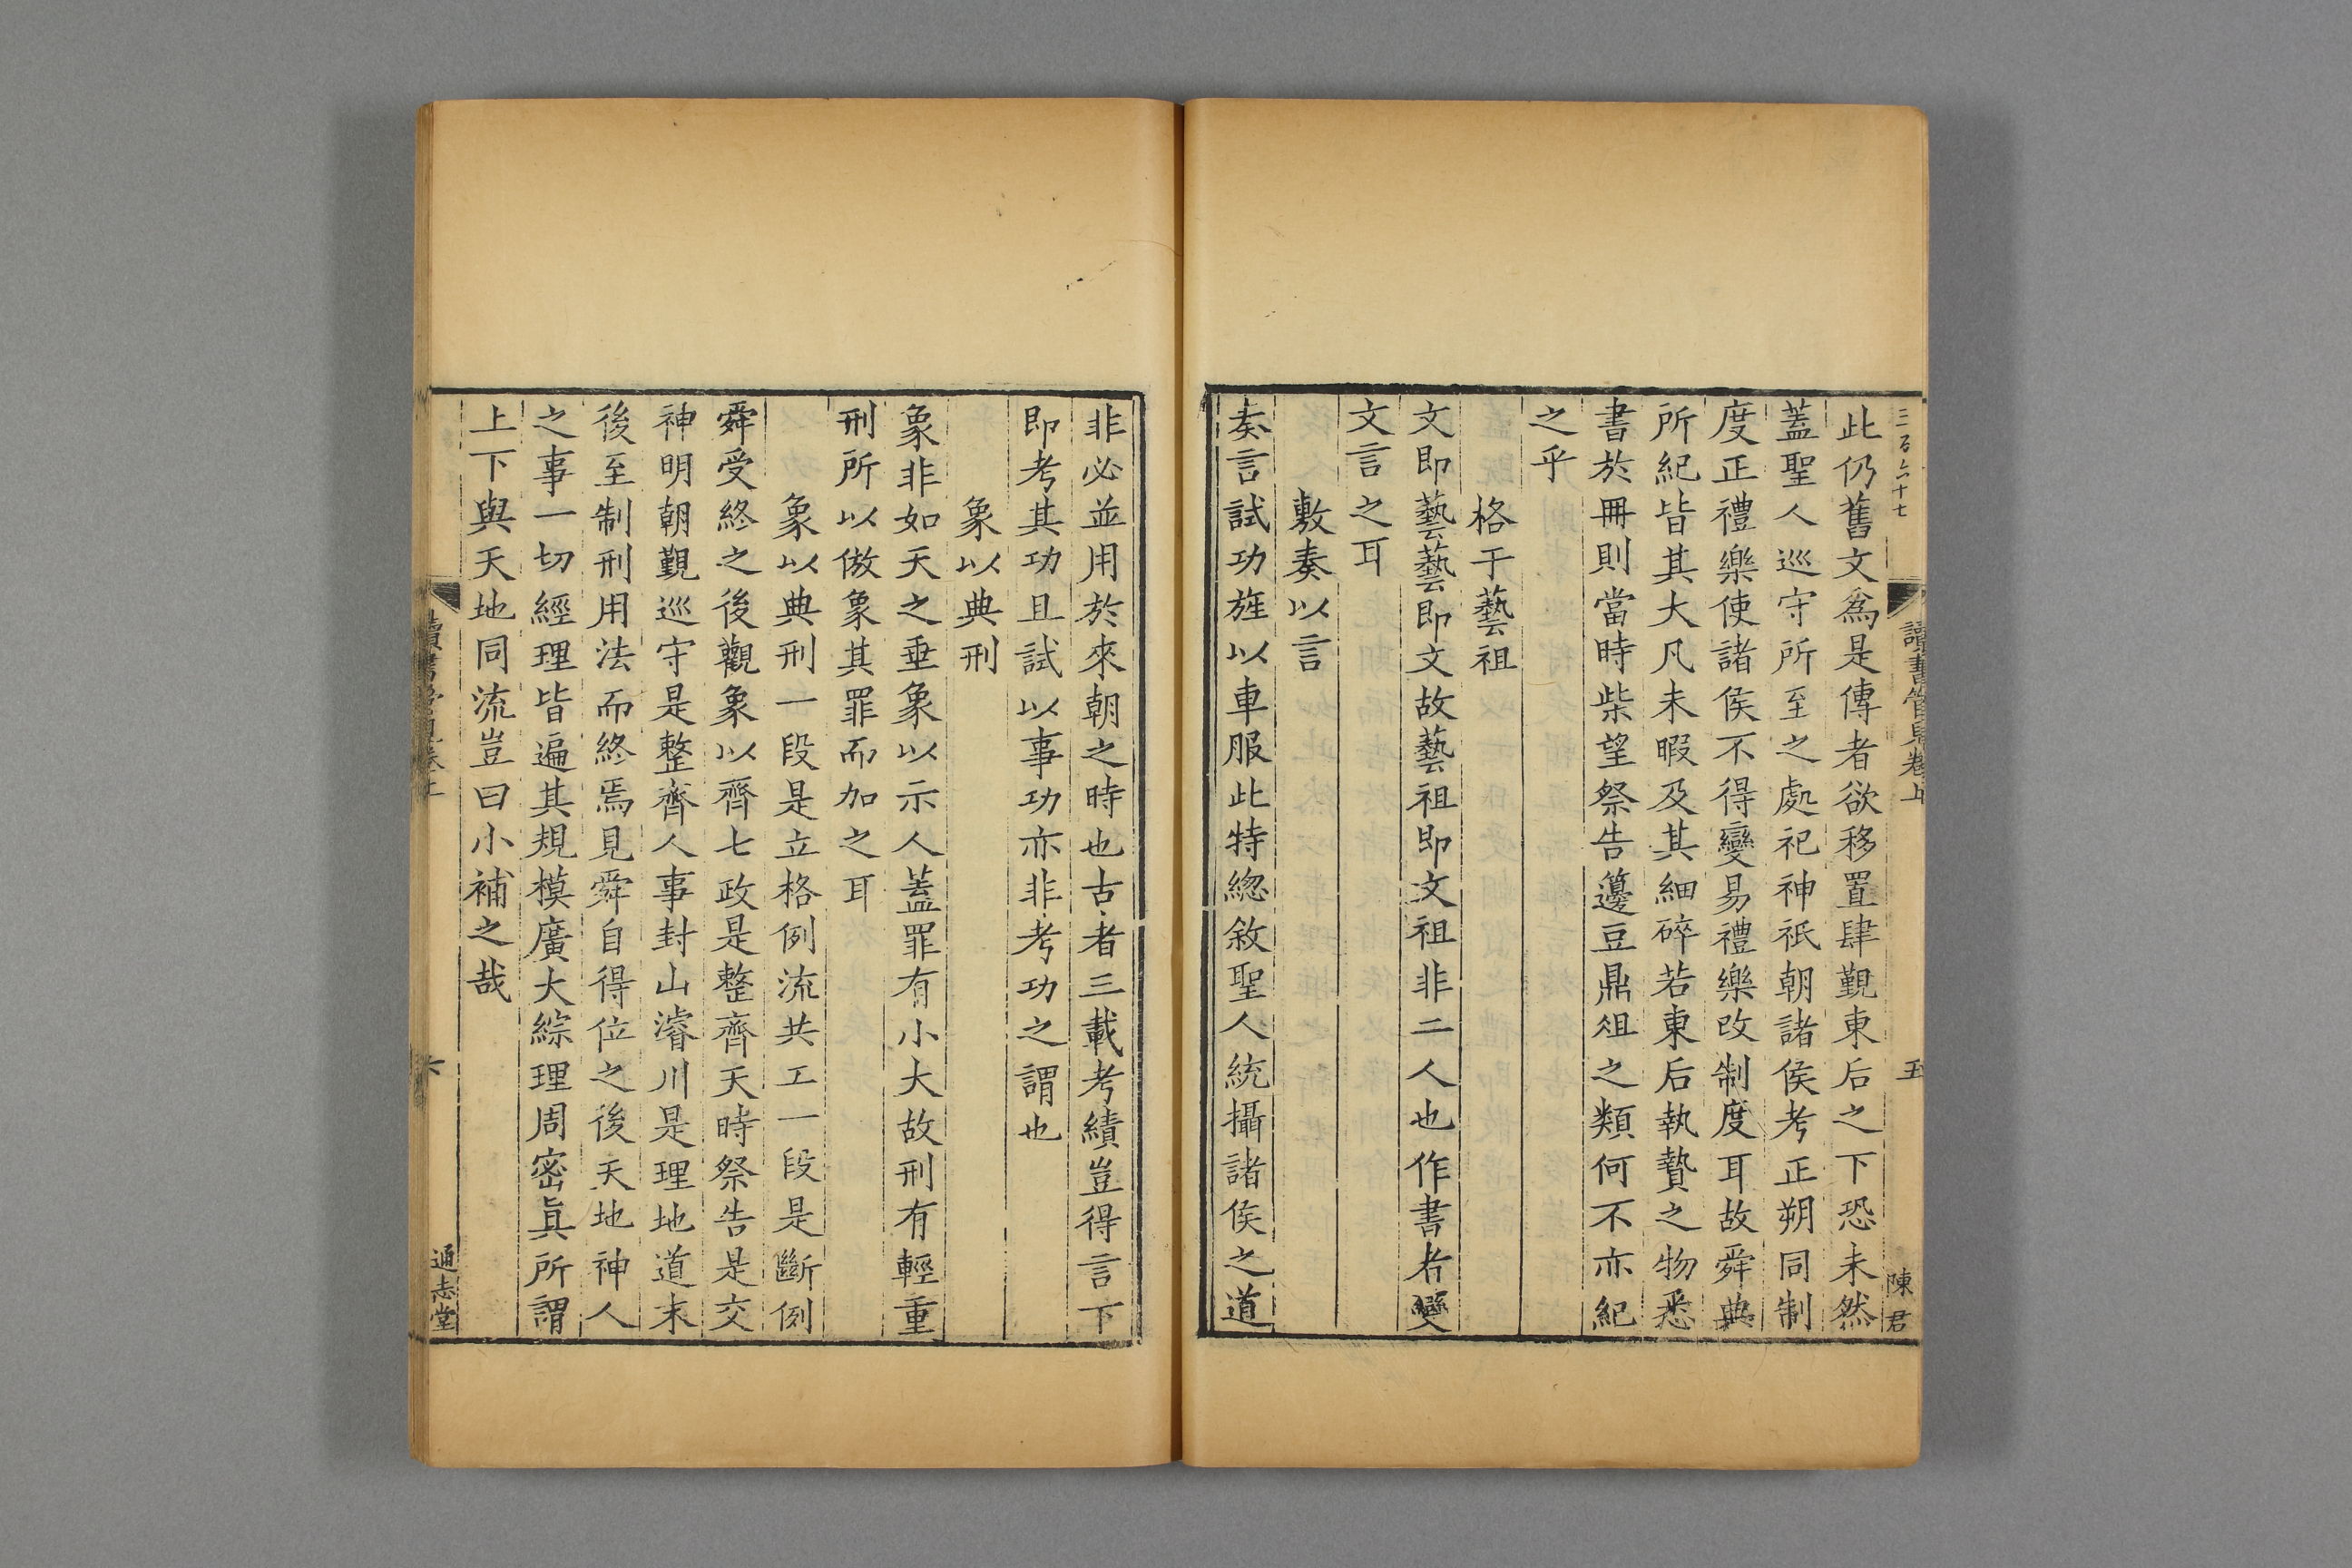 三百六十七
讀書管見卷上
五
陳君
此仍舊文爲是傳者欲移置肆覲東后之下恐未然
蓋聖人巡守所至之處祀神祇朝諸侯考正朔同制
度正禮樂使諸侯不得變易禮樂改制度耳故舜典
所紀皆其大凡未暇及其細碎若東后執贄之物悉
書於冊則當時柴望祭告籩豆鼎俎之類何不亦紀
之乎
格于藝祖
文即藝藝即文故藝祖即文祖非二人也作書者變
文言之耳
敷奏以言
奏言試功旌以車服此特緫敘聖人統攝諸侯之道
非必並用於來朝之時也古者三載考績豈得言下
即考其功且試以事功亦非考功之謂也
象以典刑
象非如天之垂象以示人蓋罪有小大故刑有輕重
刑所以倣象其罪而加之耳
象以典刑一段是立格例流共工一段是斷例
舜受終之後觀象以齊七政是整齊天時祭告是交
神明朝覲巡守是整齊人事封山濬川是理地道末
後至制刑用法而終焉見舜自得位之後天地神人
之事一切經理皆遍其規模廣大綜理周密眞所謂
上下與天地同流豈曰小補之哉
讀書管見卷上
六
通志堂